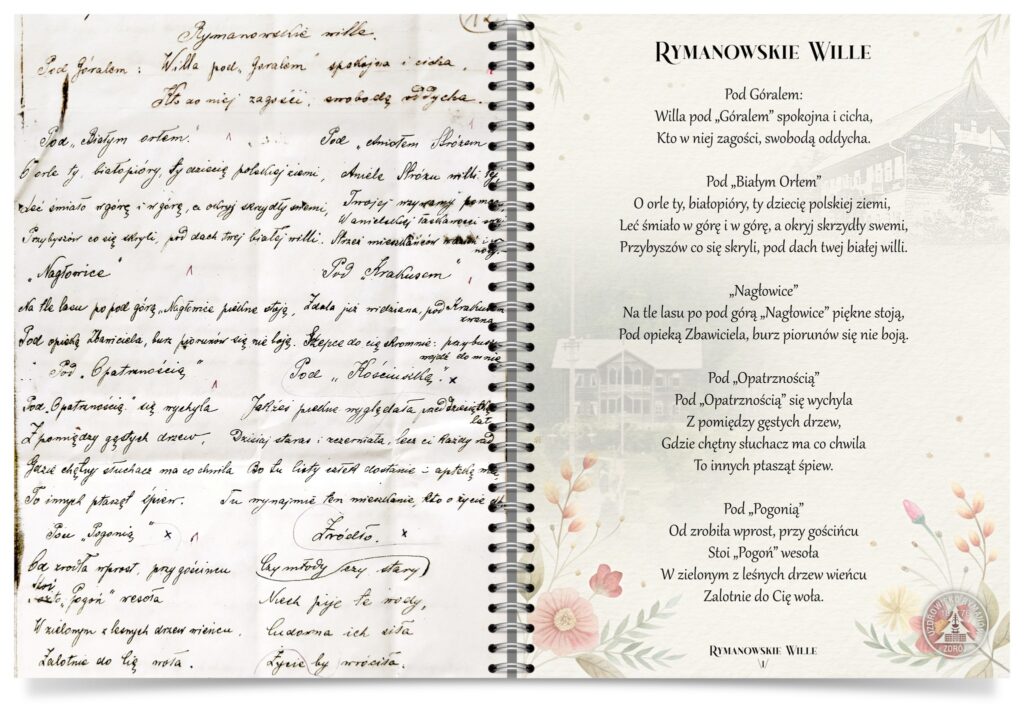 Rymanowskie wille.
Pod Góralem: Willa pod „Góralem" spokojna i cicha,
Kto do niej zagości, swobodą oddycha.
Pod „Białym orłem."
O orle ty, białopióry, ty dziecię polskiej ziemi,
Leć śmiało w górę i w górę, a okryj skrzydły swemi,
Przybyszów co się skryli, pod dach twej białej willi.
Pod „Aniołem Stróżem
Aniele Stróżu willi ty,
Twojej wzywamy
Strzeż mieszkańców
„Nagłowice"
Na tle lasu po pod górę „Nagłowice piękne stoją,
Pod opieką Zbawiciela, burz piorunów się nie boją.
Pod „Krakusem"
Zdala już widziana, pod Krakusem
zwana
Szepce do cię skromnie: przybusz
wejdź do mnie
Pod „Opatrznością"
Pod „Opatrznością" się wychyla
Z pomiędzy gęstych drzew,
Gdzie chętny słuchacz ma co chwila
To innych ptasząt śpiew.
Pod „Kościuszką" x
Jakżeś piękne wyglądała
lat
Dzisiaj stara i sczerniała, lecz ci każdy rad
Bo tu listy dostanie i aptekę ma,
Tu wynajmie ten mieszkanie, kto o życie
Pod „Pogonią" x
Od źródła wprost, przy gościńcu
Stoi „Pogoń" wesoła
W zielonym z leśnych drzew wieńcu,
Zalotnie do Cię woła.
Źródło. x
Czy młody czy stary
Niech pije te wody,
Cudowna ich siła
Życie by wróciła.
Rymanowskie Wille
Pod Góralem:
Willa pod „Góralem” spokojna i cicha,
Kto w niej zagości, swobodą oddycha.
Pod „Białym Orłem”
O orle ty, białopióry, ty dziecię polskiej ziemi,
Leć śmiało w górę i w górę, a okryj skrzydły swemi,
Przybyszów co się skryli, pod dach twej białej willi.
„Nagłowice”
Na tle lasu po pod górą „Nagłowice” piękne stoją,
Pod opieką Zbawiciela, burz piorunów się nie boją.
Pod „Opatrznością”
Pod „Opatrznością” się wychyla
Z pomiędzy gęstych drzew,
Gdzie chętny słuchacz ma co chwila
To innych ptasząt śpiew.
Pod „Pogonią”
Od zrobiła wprost, przy gościńcu
Stoi „Pogoń” wesoła
W zielonym z leśnych drzew wieńcu
Zalotnie do Cię woła.
Rymanowskie Wille
1/